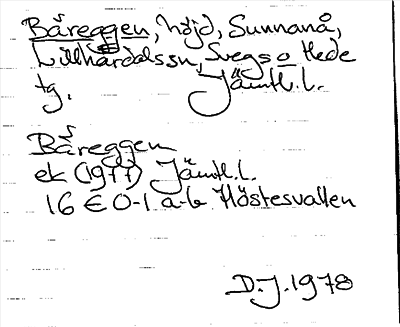 Båreggen, höjd, Sunnanå,
Lillhärdals sn, Svegs o Hede
tg. Jämtl.l.
Båreggen
ek (1977) Jämtl.l.
16 E 0-1 a-b Höstesvallen
D.J. 1978